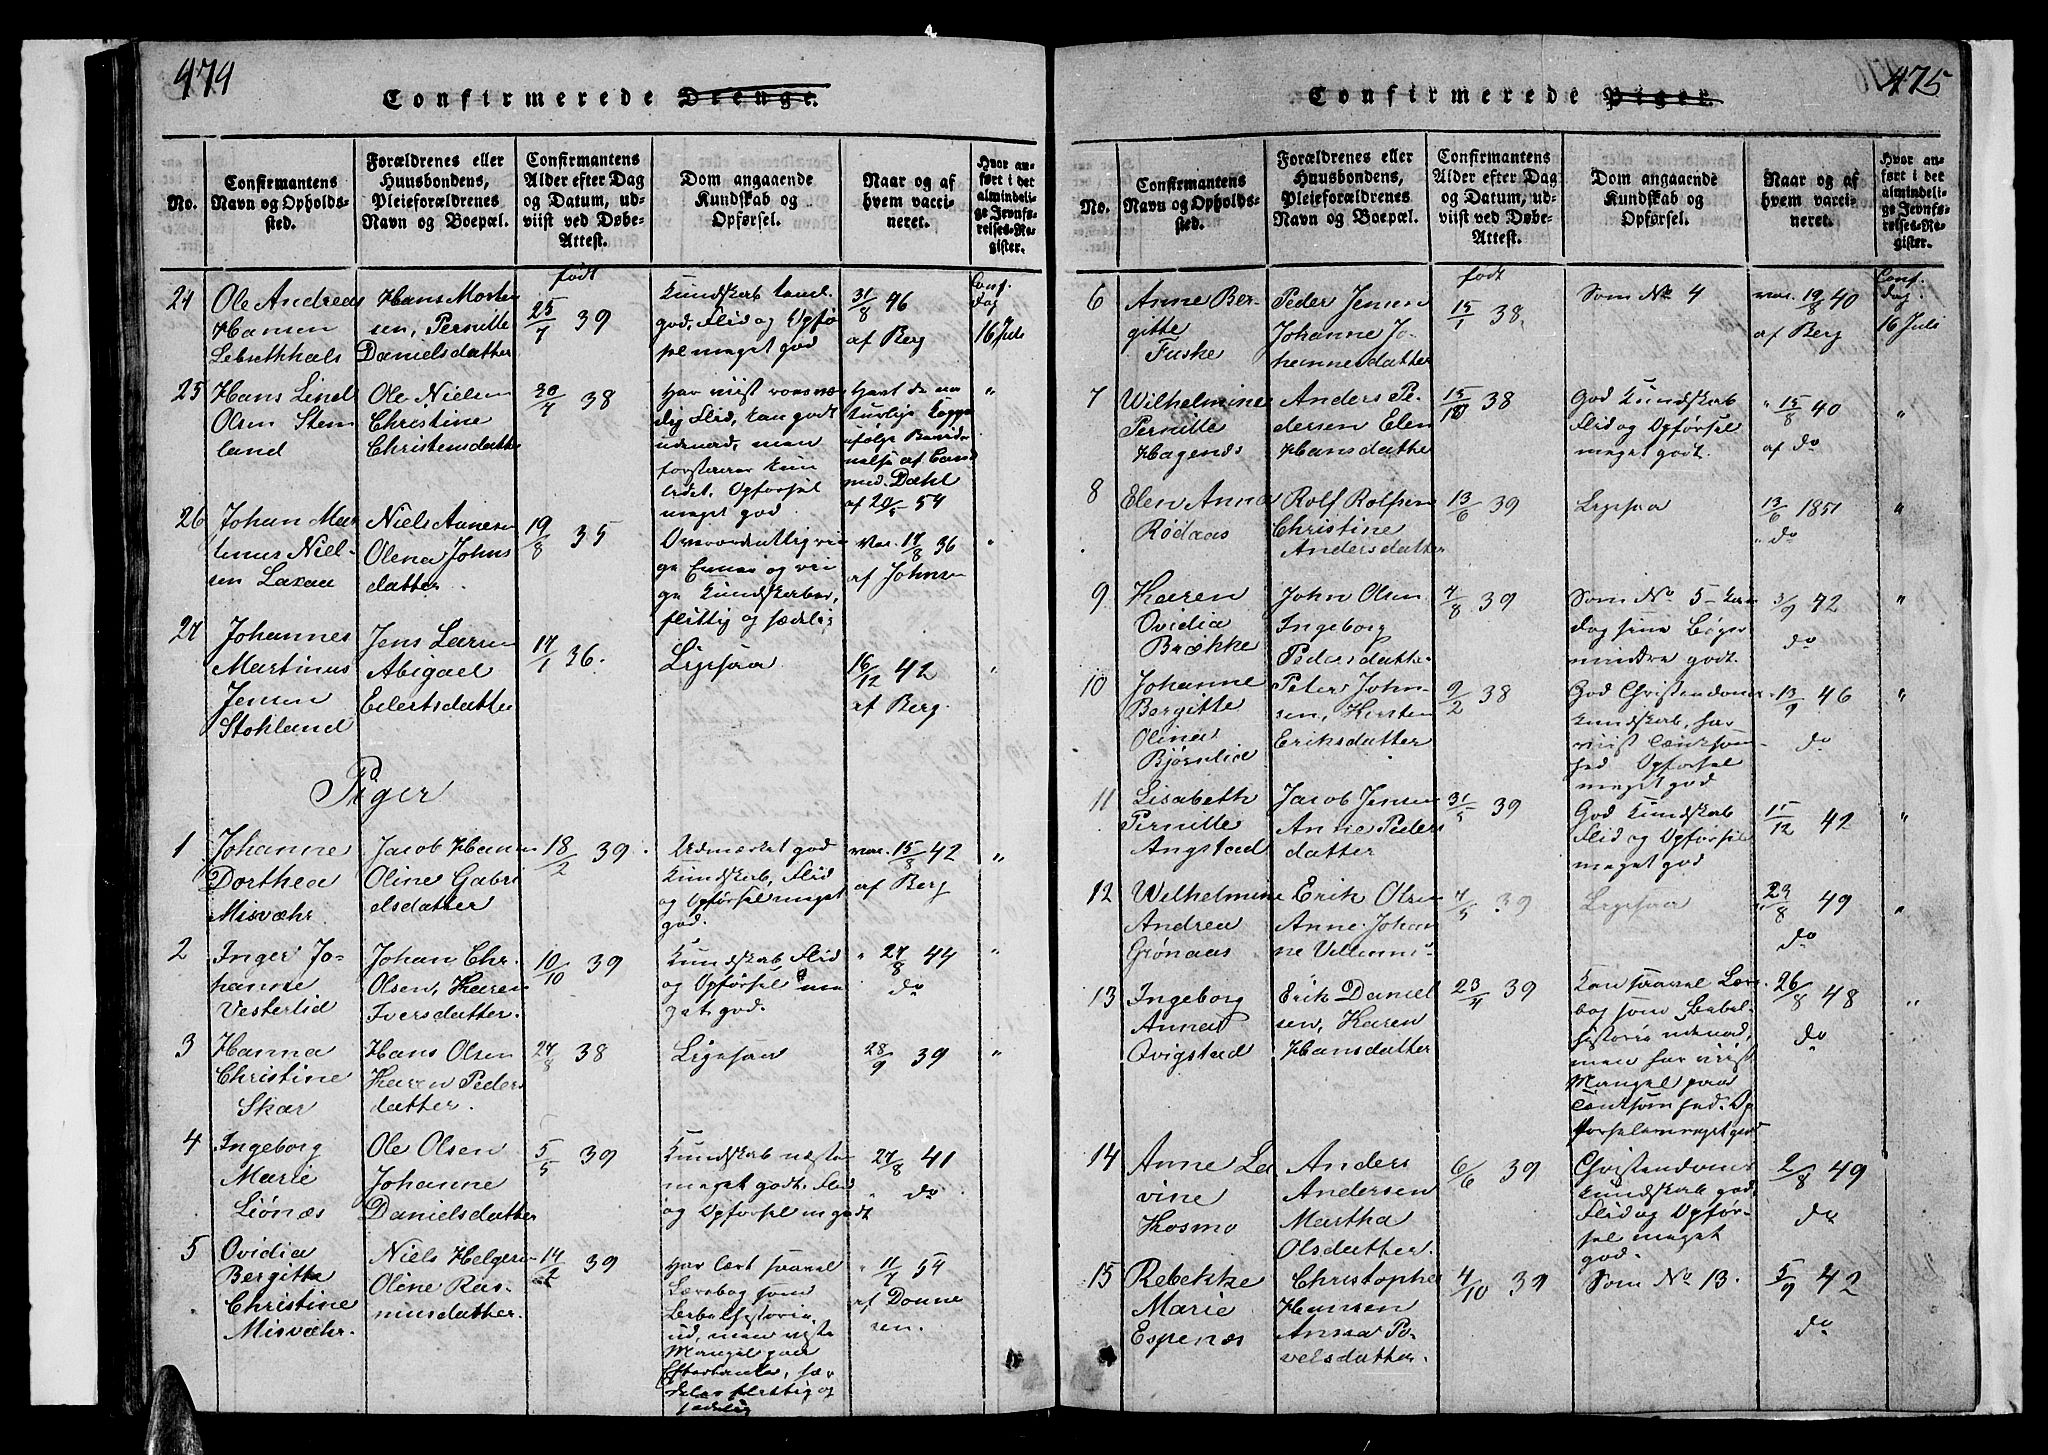 474
Confirmerede Drenge.
No.
Confirmantens Navn og Opholdssted.
Forældrenes eller Huusbondens, Pleieforældrenes Navn og Boepæl.
Confirmantens Alder efter Dag og Datum, udviist ved Døbe-Attest.
Dom angaaende Kundskab og Opførsel.
Naar og af hvem vaccineret.
Hvor anført i det almindelige Jevnførelses-Register.
født
Conf. dag
24
Ole Andreas
Hansen
Lebsethhals
Hans Morten
sen, Pernille
Danielsdatter
25/7 39
Kundskab
god, Flid og Opfør
sel meget god
31/8 46
af Berg
16 Juli
25
Hans Lind
Olsen Stem
land
Ole Nielsen
Christine
Christensdatte
20/7 38
Har viist
Flid, kan godt
udenad, men
forstaaer kun
lidet. Opførsel
meget god
Havt de na
turlige Kopper
ifølge
af Cand
med. Dahl
af 20/5 54
"
26
Johan Mar
tinus Niel-
sen Laxaa
Niels
Olena Johns
datter.
19/8 35
Overordentlig rin
ge Evner og rin
ge Kundskaber,
flittig og sædelig
Vac. 17/8 36
af Johnsen
"
27
Johannes
Martinus
Jensen
Stokland
Jens Larsen
Abigael
Eilertsdatter
17/1 36.
Ligesaa
16/12 42
af Berg.
"
Piger
1
Johanne
Dorthea
Misvæhr
Jacob Hansen
Oline Gabri
elsdatter
18/2 39.
Udmærket god
Kundskab, Flid
og Opførsel meget
god.
vac. 15/8 42
af Berg
"
2
Inger Jo-
hanne
Vesterlid
Johan Chr.
Olsen, Karen
Iversdatter.
10/10 39
Kundskab Flid
og Opførsel me
get god.
" 27/8 44
do
"
3
Hanna
Christine
Skar
Hans Olsen
Karen Peders
datter.
27/8 38
Ligesaa
28/9 39
"
4
Ingeborg
Marie
Liønæs
Ole Olsen
Johanne
Danielsdatter
5/5 39
Kundskab næsten
meget godt. Flid
og Opførsel m godt
27/8 41
" do
5
Ovidia
Bergitte
Christine
Misvæhr.
Niels Helgesen
Oline Ras-
musdatter.
14/2 39
Har lært saavel
Lærebog som
Bibelhistorie
ud, men viste
Mangel paa
Eftertanke,
flittig og
sædelig
" 11/7 54
af Donne
sen.
475
Confirmerede Piger.
No.
Confirmantens Navn og Opholdssted.
Forældrenes eller Huusbondens, Pleieforældrenes Navn og Boepæl.
Confirmantens Alder efter Dag og Datum, udviist ved Døbe-Attest.
Dom angaaende Kundskab og Opførsel.
Naar og af hvem vaccineret.
Hvor anført i det almindelige Jevnførelses-Register.
født
Conf. dag
6
Anne Ber-
gitte
Fuske
Peder Jensen
Johanne Jo-
hannesdatter
15/1 38.
Som No 4
vac. 19/8 40
af Berg
16 Juli
7
Wilhelmine
Pernille
Hagenæs
Anders Pe-
dersen Elen
Hansdatter
15/10 38
God Kundskab
Flid og Opførsel
meget godt.
" 15/8 40
af do
"
8
Elen Anna
Rødaas
Rolf Rolfsen
Christine
Andersdatter
13/6 39
Ligesaa
13/6 1851
" do
"
9
Karen
Ovidia
Brække
John Olsen
Ingeborg
Pedersdatter.
4/8 39
Som No 5 - kan
dog sine Bøger
mindre godt.
3/9 42
do
"
10
Johanne
Bergitte
Olina
Bjørnlid
Peter John-
sen, Kirsten
Eriksdatter
9/2 38
God Christendoms
Kundskab, har
viist Tænksom-
hed Opførsel
meget god
" 13/9 46
do
"
11
Lisabeth
Pernille
Angstad
Jacob Jensen
Anne Peders
datter
31/5 39
God Kundskab
Flid og Opførsel
meget god
15/12 42
"
12
Wilhelmine
Andrea
Grønaas
Erik Olsen
Anne Johan
ne Villumsd
4/5 39
Ligesaa
" 29/8 49
do
"
13
Ingeborg
Anna
Qvigstad
Erik Daniel
sen, Karen
Hansdatter
23/4 39
Kan saavel Lære-
bog som Bibel-
historie udenad,
men har viist
Mangel paa
Tænksomhed. Op
førsel meget god
26/8 48
do
"
14
Anne Le
vine
Kosmo
Anders
Andersen
Martha
Olsdatter.
6/6 39
Christendoms
Kundskab god,
Flid og Opfør-
sel meget
god.
2/8 49
do
15
Rebekke
Marie
Espenæs
Christopher
Hansen
Anna Po
velsdatter.
4/10 39
Som No 13.
5/9 42
do